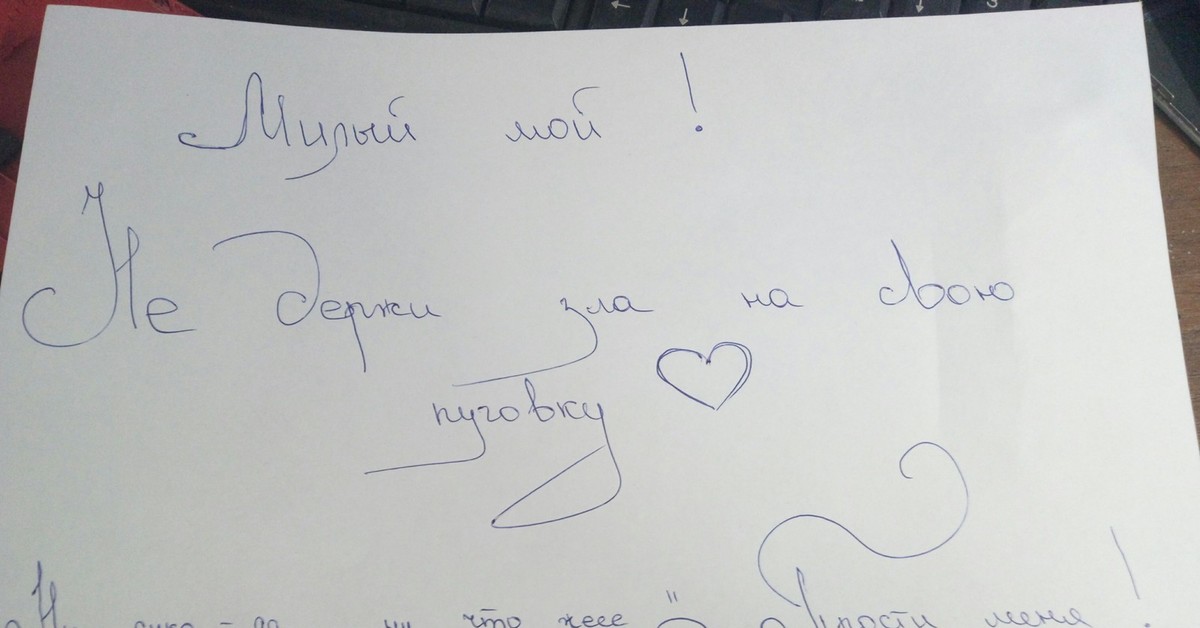 Милый мой !
Не держи зла на свою
пуговку
ну что жеее Прости меня !